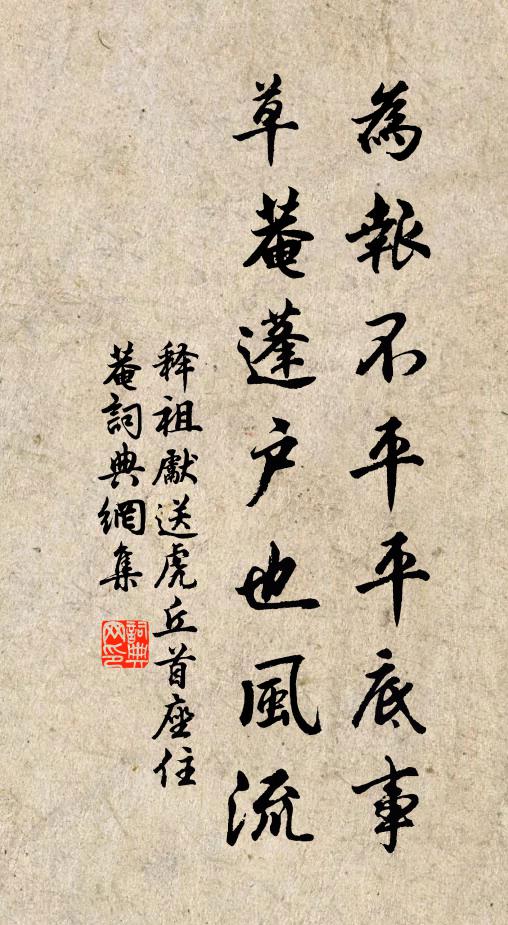 為報不平平底事
草菴蓬户也風流
释祖獻送虎丘首座住
菴詞典網集
詞典网印